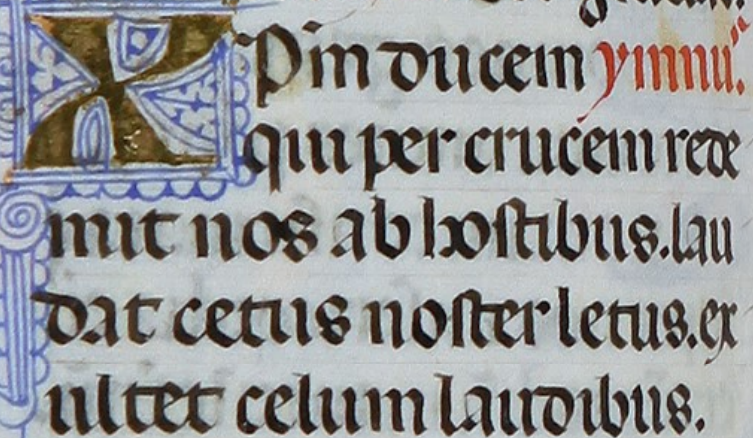 XPm ducem ymnu.
qui per crucem rede
mit nos ab hostibus. lau
dat cetus noster letus. ex
ultet celum laudibus.